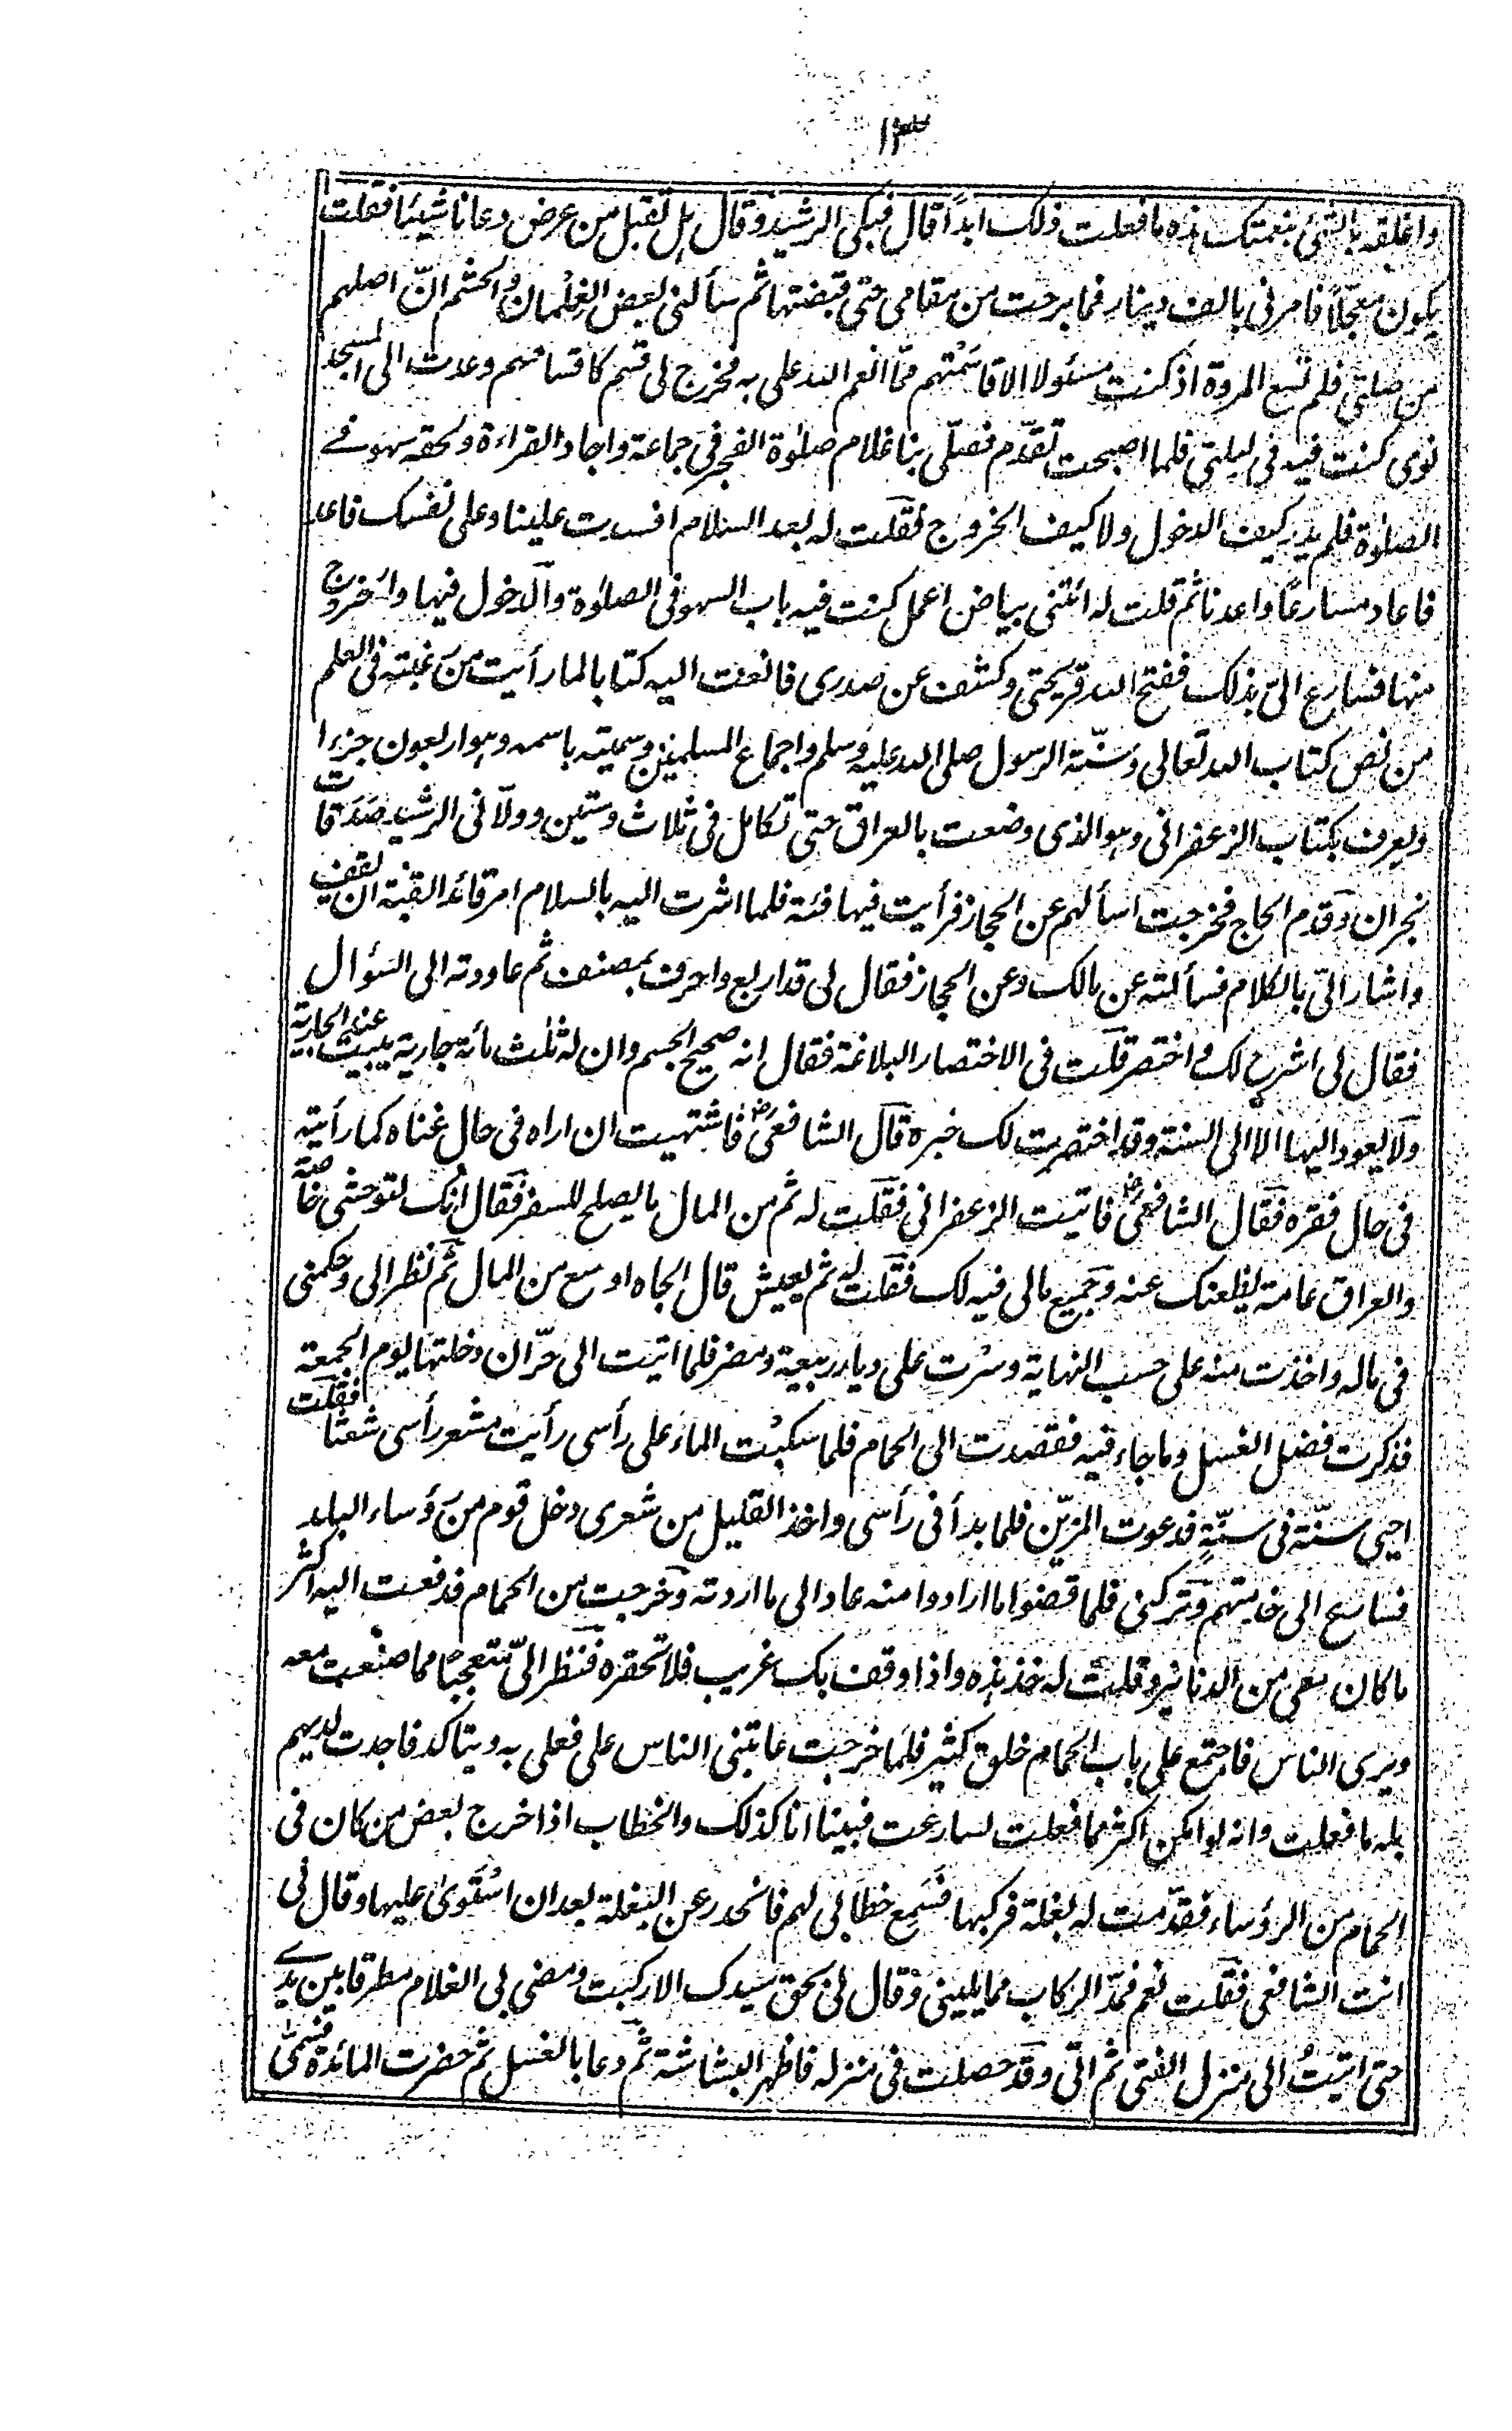 ١٣
واغلقه بالشئ بنعمتك هذه ما فعلت ذلك ابداً قال فبكى الرشيد وقال هل تقبل من عرض دعانا شيئا فقلت
يكون معجّلاً فامر لى بالف دينار فما برحت من مقامى حتى قبضتها ثم سألنى بعض الغلمان والحشم انّ اصلهم
من صلتى فلم تسع المروة اذ كنت مسئولا الا قاسمتهم ممّا انعم الله على به فخرج لى قسم كاقسامهم وعدت الى المسجد
نوى كنت فيه فى ليلتى فلما اصبحت تقدّم فصلّى بنا غلام صلوة الفجر فى جماعة واجاد القراءة ولحقه سهو فے
الصلوة فلم يدر كيف الدخول ولا كيف الخروج فقلت له بعد السلام افسدت علينا وعلى نفسك فاعد
فاعاد مسارعًا واعدنا ثم قلت له ائتنى ببياض اعمل كنت فيه باب السهو فى الصلوة والدخول فيها والخروج
منها فسارع الىّ بذلك ففتح الله قريحتى وكشف عن صدرى فالفت اليه كتابا لما رأيت من رغبته فى العلم
من نص كتاب الله تعالى وسنّة الرسول صلى الله عليه وسلم واجماع المسلمين وسميته باسمه وهو اربعون جزءا
ويعرف بكتاب الزعفرانى وهو الذى وضعت بالعراق حتى تكامل فى ثلاث وستين وولّانى الرشيد صدقات
نجران وقدم الحاج فخرجت اسألهم عن الحجاز فرأيت فيها فئة فلما اشرت اليه بالسلام امر قائد القبة ان يقف
واشار الىّ بالكلام فسألته عن مالك وعن الحجاز فقال لى قد اربع واحرف بمصنف ثم عاودته الى السؤال
فقال لى اشرح لك او اختصر قلت فى الاختصار البلاغة فقال انه صحيح الجسم وان له ثلث مأة جارية يبيت عند الجارية
ولا يعود اليها الا الى السنة وقد اختصرت لك خبره قال الشافعىؓ فاشتهيت ان اراه فى حال غناه كما رأيته
فى حال فقره فقال الشافعىؓ فاتيت الزعفرانى فقلت له ثم من المال ما يصلح للسفر فقال انك لتوحشنى خاصة
والعراق عامة لظعنك عنه وجميع مالى فيه لك فقلت له ثم يعيش قال الجاه اوسع من المال ثم نظر الى وحكمنى
فى ماله واخذت منه على حسب النهاية وسرت على ديار ربيعة ومضر فلما اتيت الى حرّان دخلتها يوم الجمعة
فذكرت فضل الغسل وما جاء فيه فقصدت الى الحمام فلما سكبت الماء على رأسى رأيت شعر رأسى شعثا فقلت
احيى سنّة فى سنّةٍ فدعوت المزيّن فلما بدأ فى رأسى واخذ القليل من شعرى دخل قوم من رؤساء البلد
فسارع الى خدمتهم وتركنى فلما قضوا ما ارادوا منه عاد الى ما اردته وخرجت من الحمام فدفعت اليه اكثر
ما كان معى من الدنانير وقلت له خذ هذه واذا وقف بك غريب فلا تحقره فنظر الىّ متعجبا مما صنعت معه
ويرى الناس فاجتمع على باب الحمام خلق كثير فلما خرجت عاتبنى الناس على فعلى به ويتاكد فاجدت لديهم
بله ما فعلت وانه لو امكن اكثر مما فعلت لسارعت فبينا انا كذلك والخطاب اذا خرج بعض من كان فى
الحمام من الرؤساء فقدّمت له بغلة فركبها فسمع خطابى لهم فانحدر عن البغلة بعد ان استوى عليها وقال لى
انت الشافعى فقلت نعم فمدّ الركاب مما يلينى وقال لى بحق سيدك الا ركبت ومضى بى الغلام مطرقا بين يدے
حتى اتيتُ الى منزل الفتى ثم اتى وقد حصلت فى منزله فاظهر البشاشة ثم دعا بالغسل ثم حضرت المائدة فسمّى